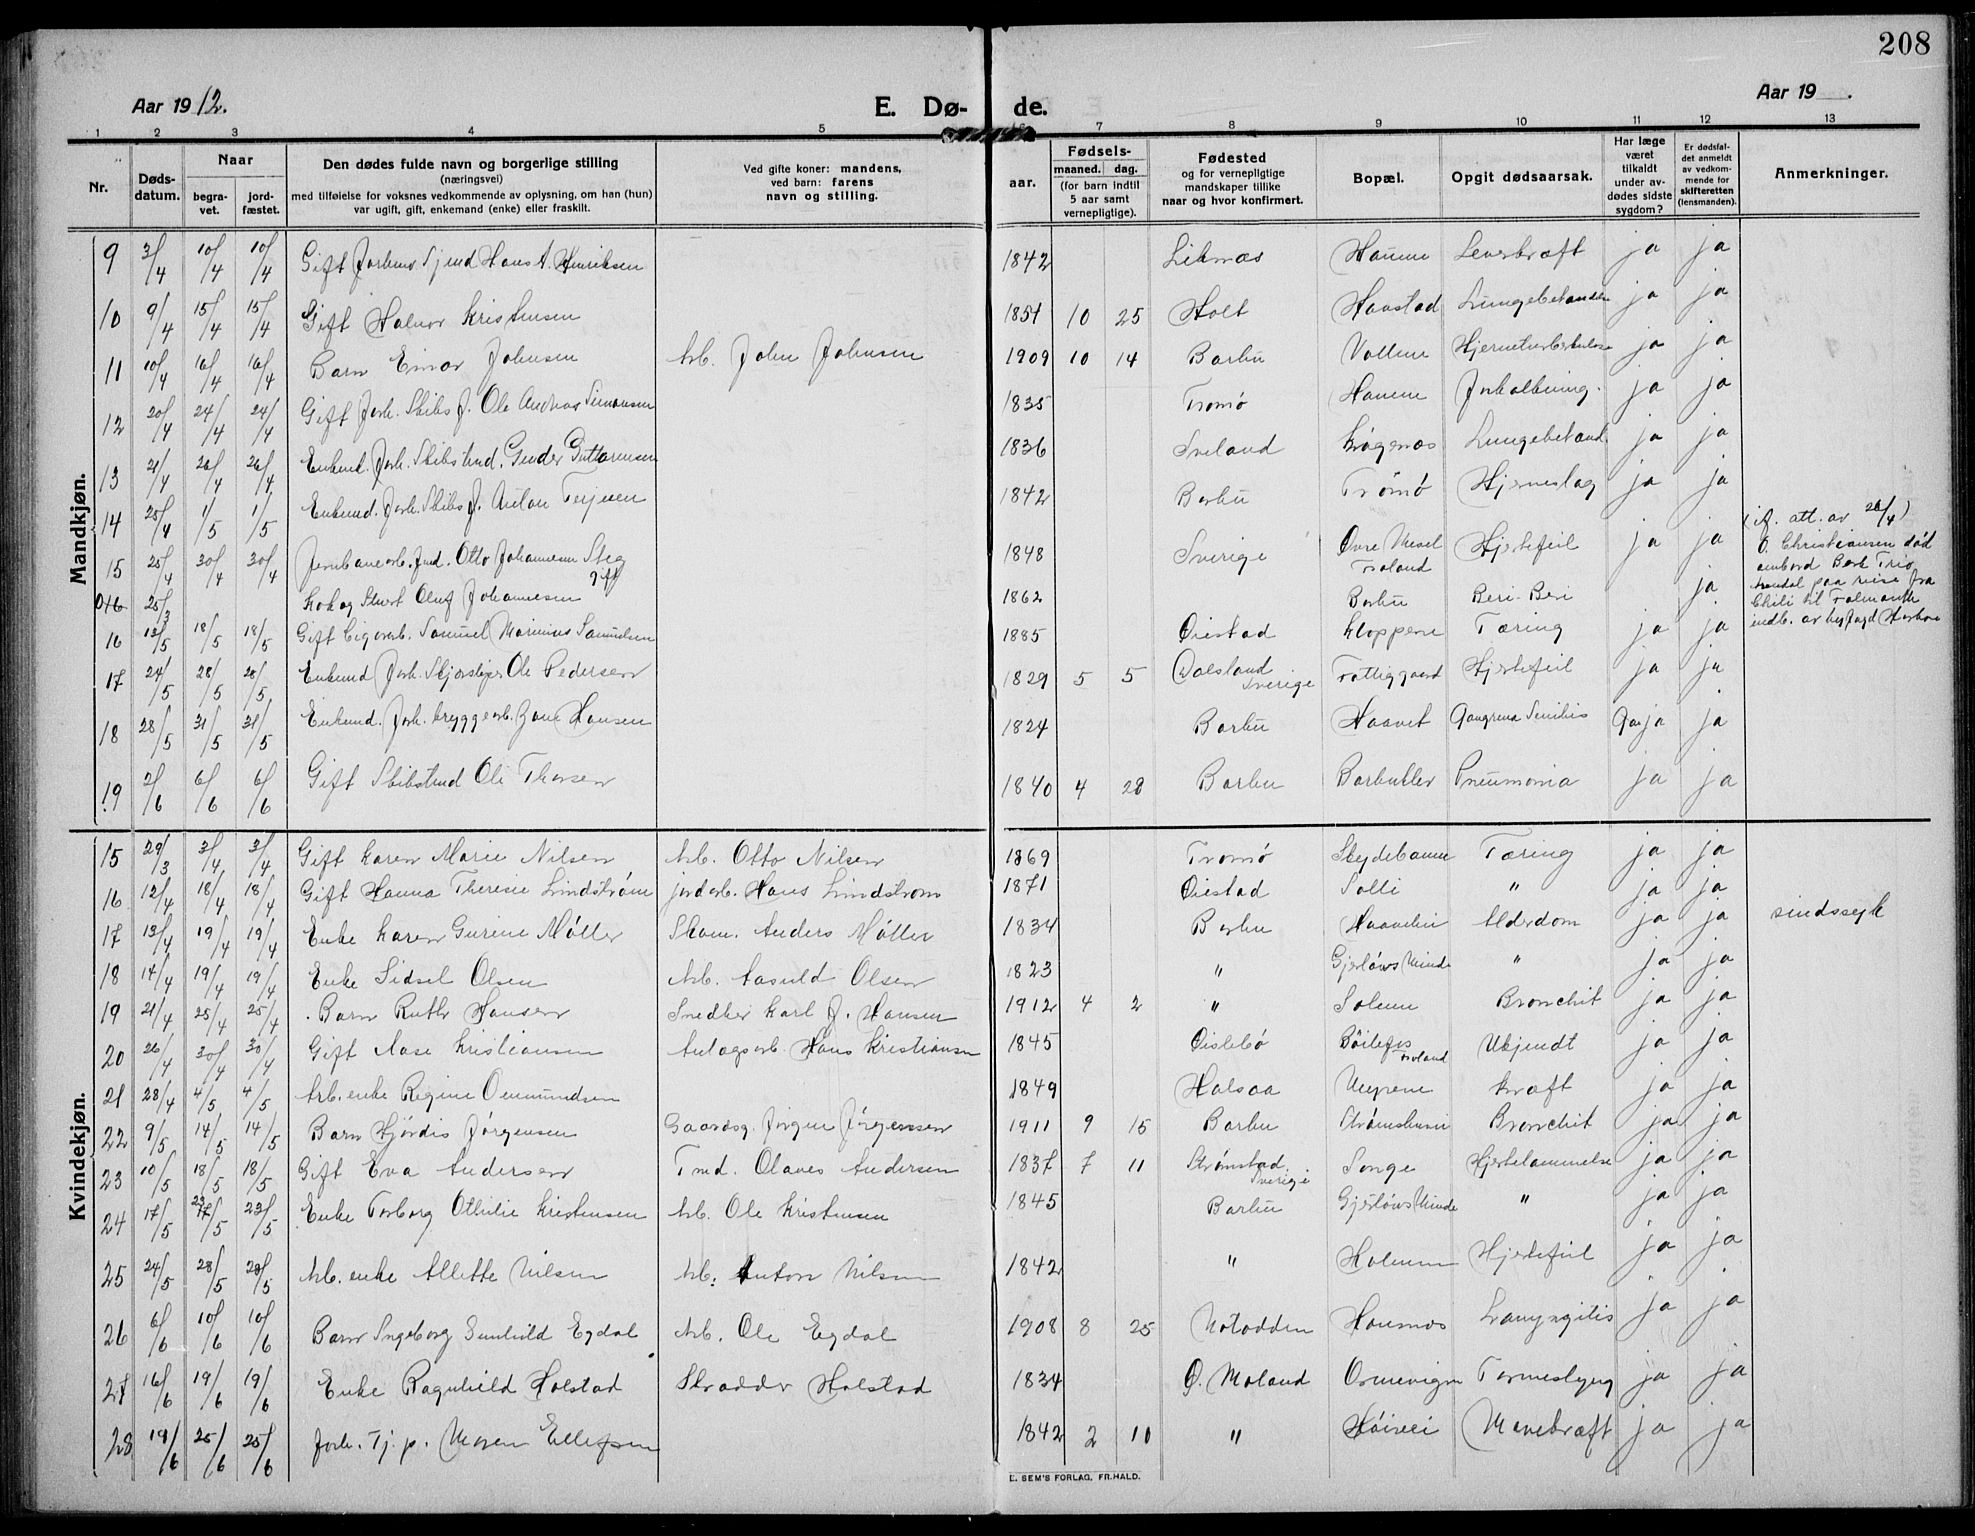 208
Aar 1912. E. Dø- de. Aar 19 .
1 2 3 4 5 6 7 8 9 10 11 12 13
Nr. Dødsdatum. Naar begravet. jordfæstet. Den dødes fulde navn og borgerlige stilling (næringsvei) med tilføielse for voksnes vedkommende av oplysning, om han (hun) var ugift, gift, enkemand (enke) eller fraskilt. Ved gifte koner: mandens, ved barn: farens navn og stilling. aar. Fødsels- maaned. dag. (for barn indtil 5 aar samt vernepligtige). Fødested og for vernepligtige mandskaper tillike naar og hvor konfirmert. Bopæl. Opgit dødsaarsak. Har læge været tilkaldt under avdødes sidste sygdom? Er dødsfaldet anmeldt av vedkommende for skifteretten (lensmanden). Anmerkninger.
Mandkjøn.
9 3/4 10/4 10/4 Gift Hans A. Henriksen 1842 Liknæs Leverkræft ja ja
10 9/4 15/4 15/4 Gift Halvor Kristensen 1851 10 25 Holt Lungebetændelse ja ja
11 10/4 16/4 16/4 Barn Einar Johnsen Arb. John Johnsen 1909 10 14 Barbu Vollene Hjernetuberkulose ja ja
12 20/4 24/4 24/4 Gift Forh. Skibsf. Ole Andreas Simonsen 1835 Tromø Forkalkning. ja ja
13 21/4 26/4 26/4 Enkemd. Forh. Skibstmd. Gunder Guttormsen 1836 Lungebetænd. ja ja
14 25/4 1/5 1/5 Enkemd. Forh. Skibsf. Anton Terjesen 1842 Barbu Tromø Hjerneslag ja ja
15 25/4 30/4 30/4 Jernbanearb. Otto Johannesen Steg gift 1848 Sverige Øvre Messel Froland Hjertefeil ja ja
016 25/3 Kok og Stuert Oluf Johannesen 1862 Barbu Beri-Beri ja (if. att. av 26/4) O. Christiansen død ombord Bark Trio Arendal paa reise fra Chili til Falmouth
16 13/5 18/5 18/5 Gift Cigararb. Samuel Marinius Samuelsen 1885 Øiestad Kloppene Tæring ja ja
17 24/5 28/5 28/5 Enkemd Forh. Ole Pedersen 1829 5 5 Dalsland Sverige Fattiggaard Hjertefeil ja ja
18 28/5 31/5 31/5 Enkemd. Forh. bryggearb. Hansen 1824 Barbu Haavet Gangrena Senilis ja ja
19 2/6 6/6 6/6 Gift Skibstmd Ole Thorsen 1840 4 28 Barbu Pneumonia ja ja
Kvindekjøn.
15 29/3 3/4 3/4 Gift Karen Marie Nilsen Arb. Otto Nilsen 1869 Tromø Skydebanen Tæring ja ja
16 12/4 18/4 18/4 Gift Hanna Therese Lindstrøm jordarb. Hans Lindstrøm 1871 Øiestad Solli " ja ja
17 13/4 19/4 19/4 Enke Karen Gurine Møller Skom. Anders Møller 1834 Barbu Alderdom ja ja sindssyk
18 14/4 19/4 19/4 Enke Sidsel Olsen Arb. Aasuld Olsen 1823 " Gjerløws Minde " ja ja
19 21/4 25/4 25/4 Barn Ruth Hansen Snedker Karl J. Hansen 1912 4 2 " Solum Bronchit ja ja
20 26/4 30/4 30/4 Gift Aase Kristiansen Anlagsarb. Hans Kristiansen 1845 Øislebø Bøilefos Froland Ukjendt ja ja
21 28/4 4/5 4/5 Arb. enke Regine Ommundsen 1849 Halsaa Myrene Kræft ja ja
22 9/5 14/5 14/5 Barn Hjørdis Jørgensen Gaardsg. Jørgen Jørgensen 1911 9 15 Barbu Bronchit ja ja
23 10/5 18/5 18/5 Gift Eva Andersen Tmd. Olaves Andersen 1837 7 11 Strømstad Sverige Songe Hjertelammelse ja ja
24 17/5 23/5 23/5 Enke Torborg Othilie Kristensen Arb. Ole Kristensen 1845 Barbu Gjerløws Minde " ja ja
25 24/5 28/5 28/5 Arb. enke Allette Nilsen Arb. Anton Nilsen 1842 " Hjertefeil ja ja
26 6/6 10/6 10/6 Barn Ingeborg Gunhild Egdal Arb. Ole Egdal 1908 8 25 Notodden Havnæs Laryngitis ja ja
27 16/6 19/6 19/6 Enke Ragnhild Holstad Skrædder Holstad 1834 Ø. Moland Ormevigen Tarmeslyng ja ja
28 19/6 25/6 25/6 Forh. Tj.p. Maren Ellefsen 1842 2 10 " Høivei Mavekræft ja ja
E. SEM'S FORLAG, FR.HALD.